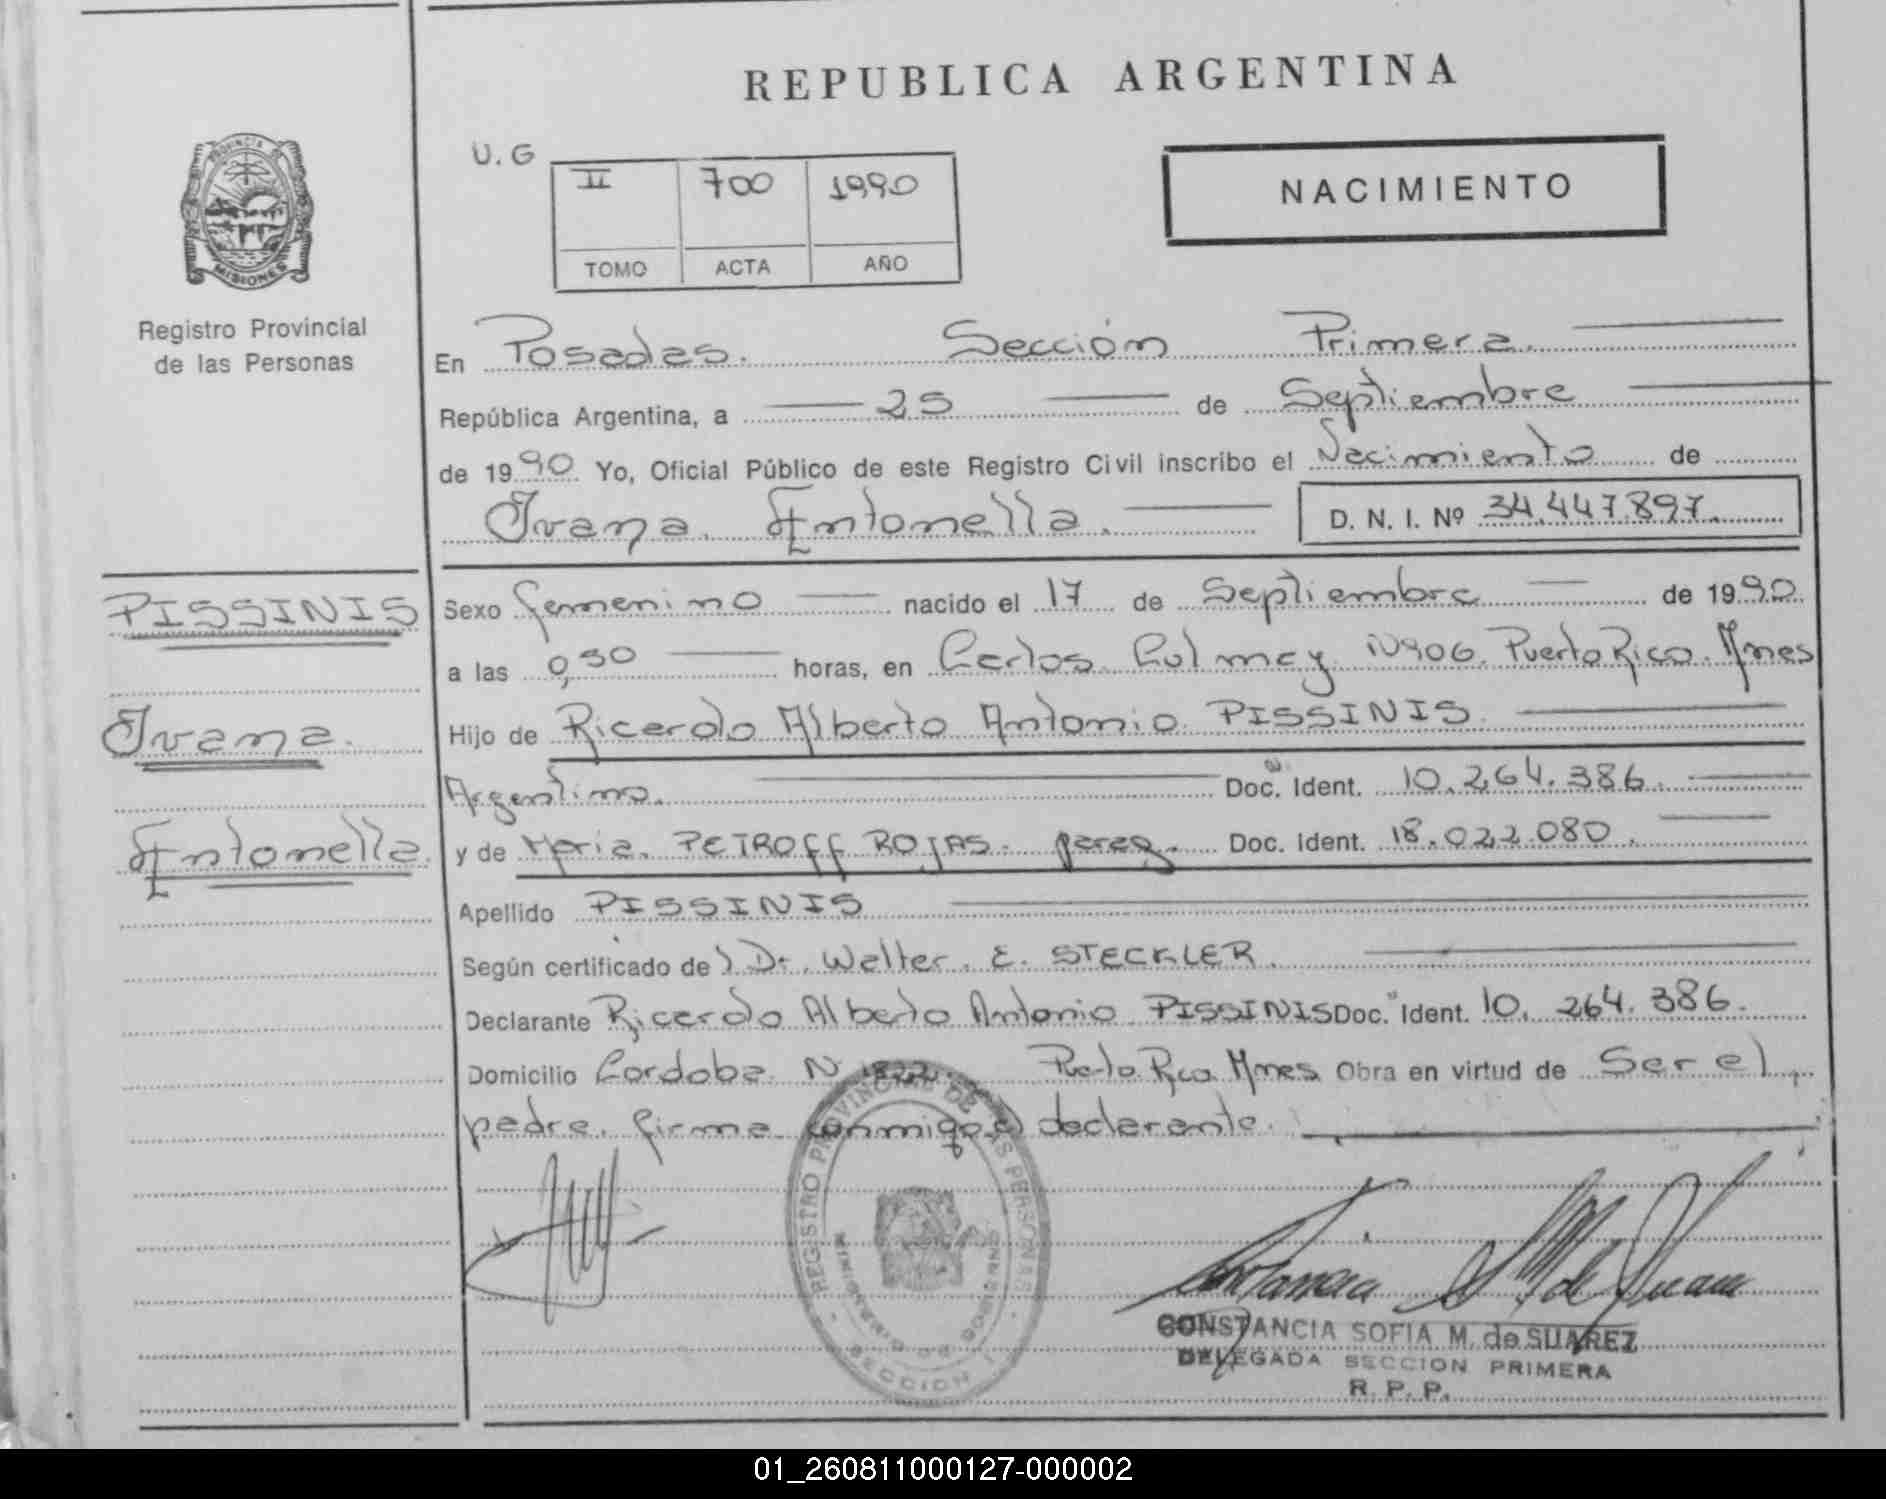 REPUBLICA ARGENTINA
PROVINCIA DE
MISIONES
Registro Provincial
de las Personas
U.G
II 700 1990
TOMO ACTA AÑO
NACIMIENTO
En Posadas. Sección Primera.
República Argentina, a 25 de Septiembre
de 1990 Yo, Oficial Público de este Registro Civil inscribo el Nacimiento de
Ivana Antonella. D. N. I. Nº 34.447.897.
PISSINIS
Ivana.
Antonella.
Sexo femenino nacido el 17 de Septiembre de 1990
a las horas, en Carlos Culmey Nº906. Puerto Rico. Mnes
Hijo de Ricardo Alberto Antonio PISSINIS.
Argentino. Doc. Ident. 10.264.386.
y de Maria. PETROFF ROJAS. parag. Doc. Ident. 18.022.080.
Apellido PISSINIS
Según certificado de Dr. Walter. E. STECKLER.
Declarante Ricardo Alberto Antonio PISSINIS Doc. Ident. 10.264.386.
Domicilio Cordoba N Puerto Rico Mnes Obra en virtud de Ser el
padre. firma conmigo el declarante.
REGISTRO PROVINCIAL DE LAS PERSONAS
MINISTERIO DE GOBIERNO
SECCION 1
CONSTANCIA SOFIA M. de SUAREZ
DELEGADA SECCION PRIMERA
R. P. P.
01_260811000127-000002